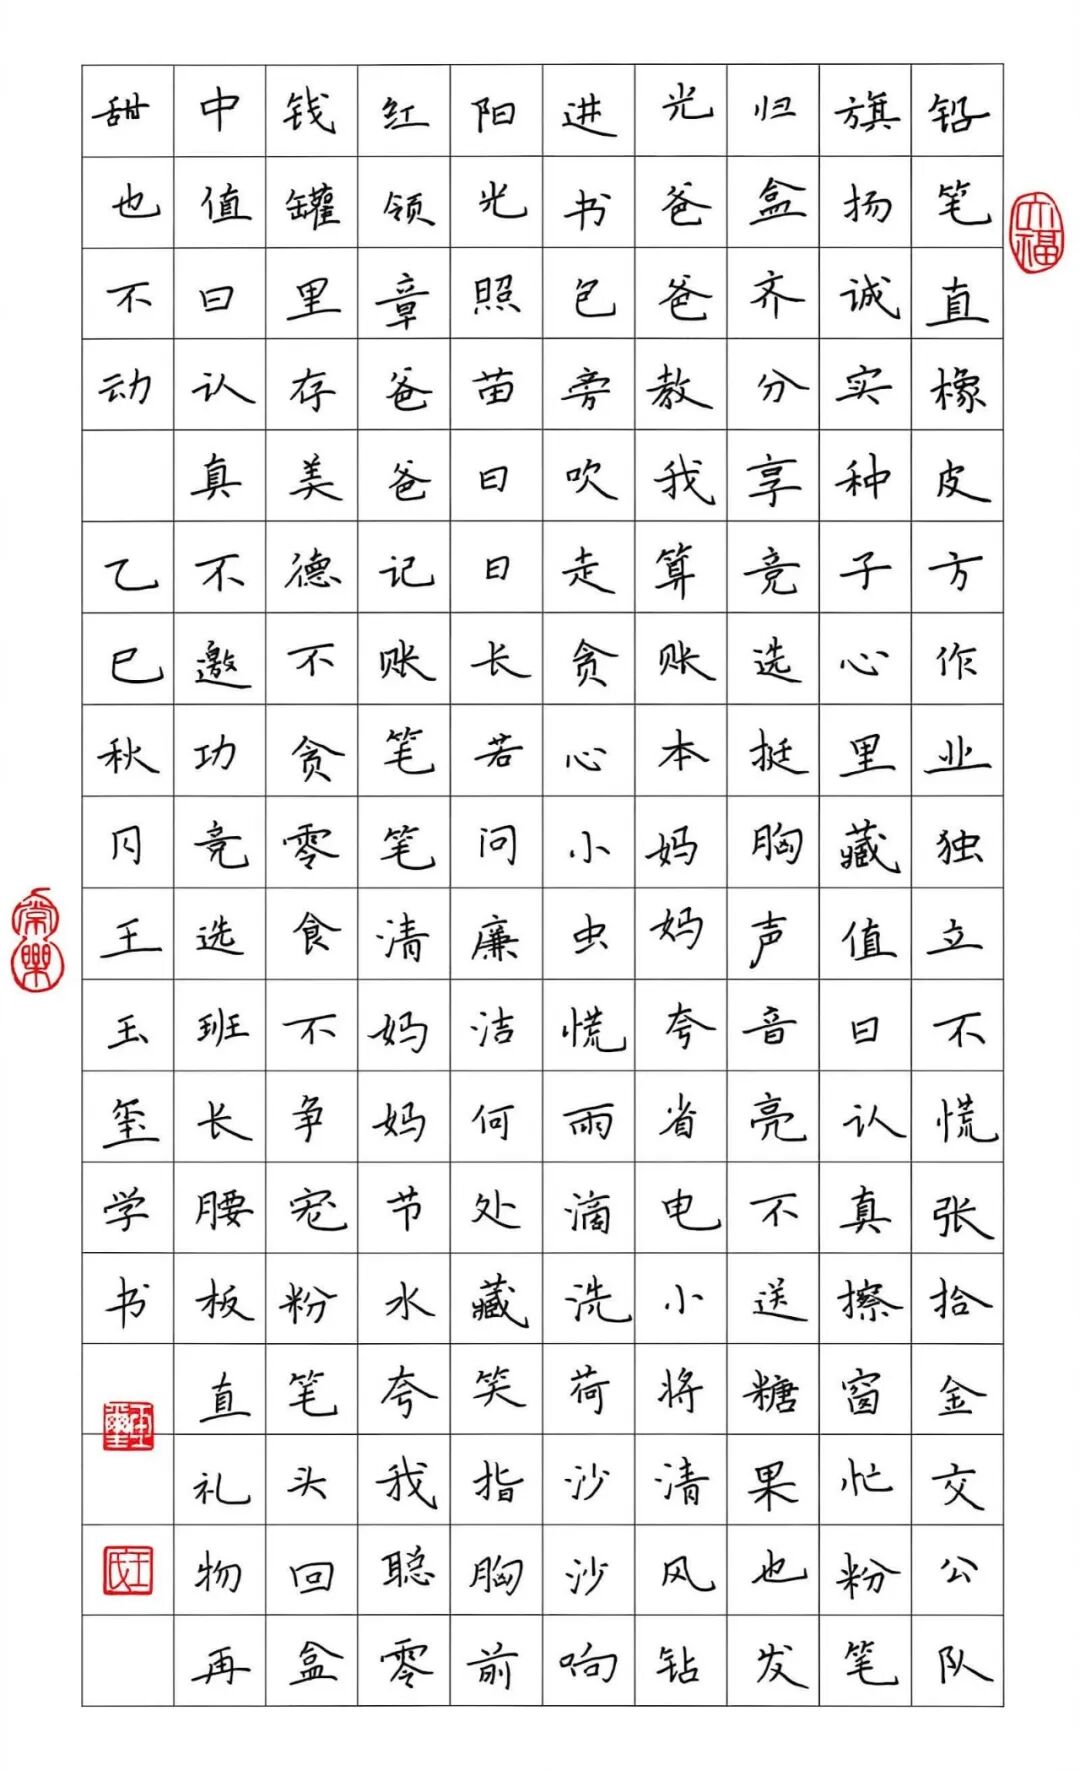 铅笔直橡皮方作业独立不慌张拾金交公队
旗扬诚实种子心里藏值日认真擦窗忙粉笔
归盒齐分享竞选挺胸声音亮不送糖果也发
光爸爸教我算账本妈妈夸省电小将清风钻
进书包旁吹走贪心小虫慌雨滴洗荷沙沙响
阳光照苗日日长若问廉洁何处藏笑指胸前
红领章爸爸记账笔笔清妈妈节水夸我聪零
钱罐里存美德不贪零食不争宠粉笔头回盒
中值日认真不邀功竞选班长腰板直礼物再
甜也不动 乙巳秋月王玉玺学书
六福
常乐
玉玺
王氏